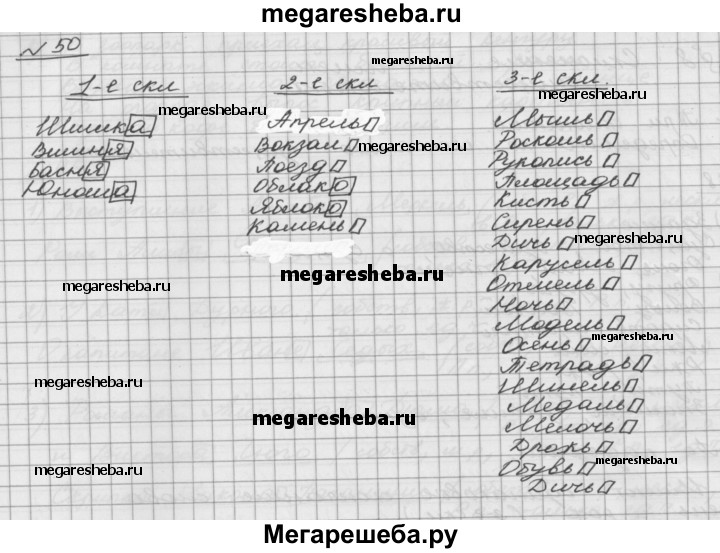 megaresheba.ru
№ 50
1-е скл
Шишка
Вишня
Басня
Юноша
2-е скл
Апрель
Вокзал
Поезд
Облако
Яблоко
Камень
3-е скл.
Мышь
Роскошь
Рукопись
Площадь
Кисть
Сирень
Дичь
Карусель
Отмель
Ночь
Модель
Осень
Тетрадь
Шинель
Медаль
Мелочь
Дрожь
Обувь
Дичь
megaresheba.ru
megaresheba.ru
megaresheba.ru
megaresheba.ru
megaresheba.ru
megaresheba.ru
megaresheba.ru
megaresheba.ru
megaresheba.ru
megaresheba.ru
megaresheba.ru
megaresheba.ru
megaresheba.ru
Мегарешеба.ру